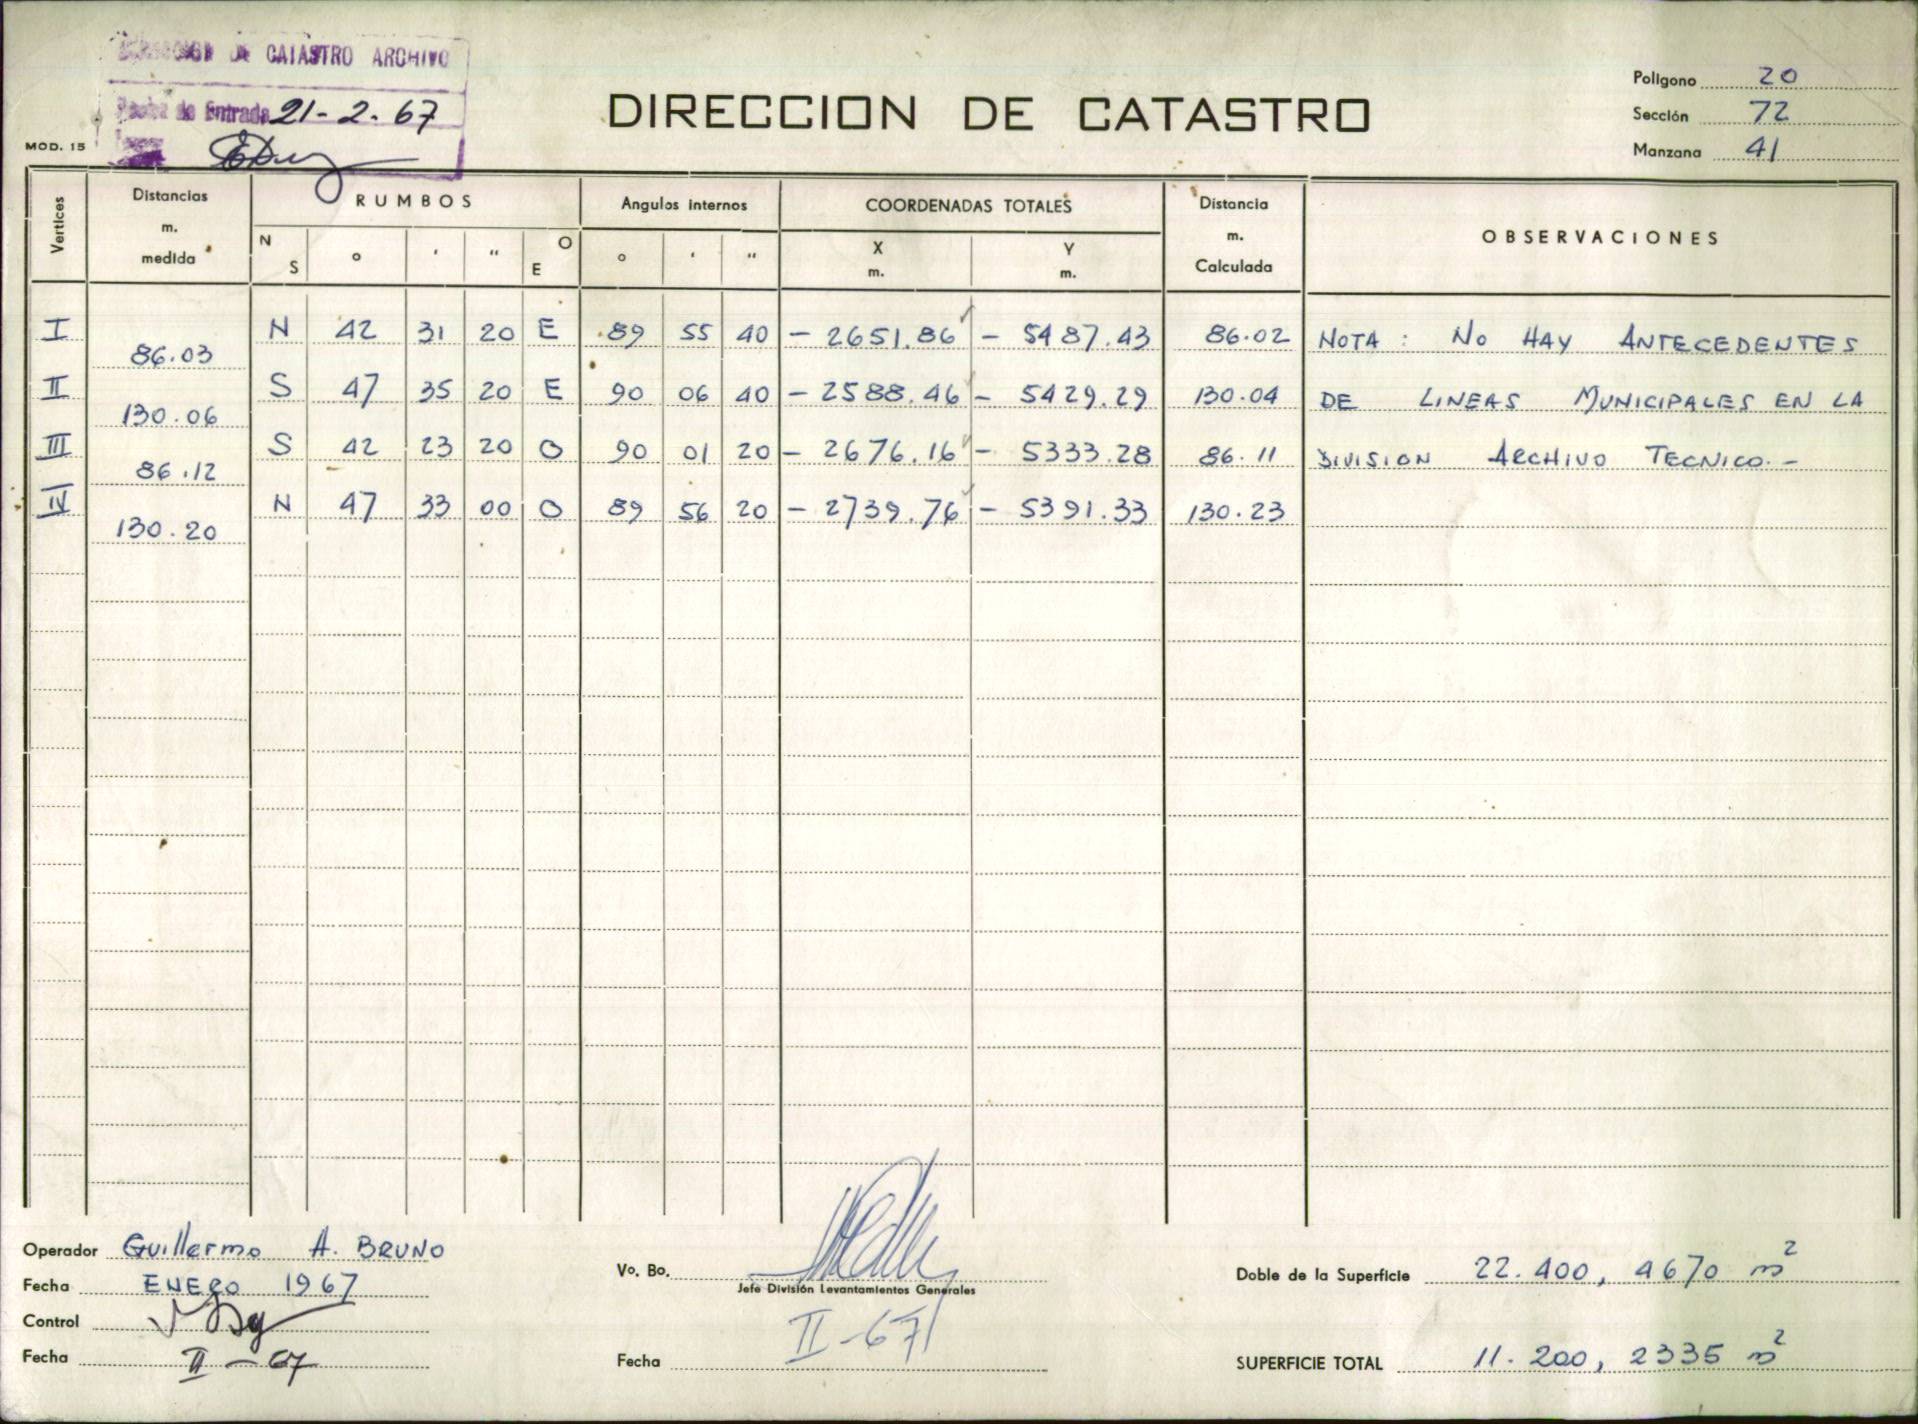 DIRECCION DE CATASTRO ARCHIVO
Fecha de Entrada 21-2-67
MOD. 15
DIRECCION DE CATASTRO
Poligono 20
Sección 72
Manzana 41
Vertices Distancias m. medida RUMBOS Angulos internos COORDENADAS TOTALES Distancia m. Calculada OBSERVACIONES
N S ° ' " O E ° ' " X m. Y m.
I 86.03 N 42 31 20 E 89 55 40 - 2651.86 - 5487.43 86.02 NOTA : No HAY ANTECEDENTES
II 130.06 S 47 35 20 E 90 06 40 - 2588.46 - 5429.29 130.04 DE LINEAS MUNICIPALES EN LA
III 86.12 S 42 23 20 O 90 01 20 - 2676.16 - 5333.28 86.11 DIVISION ARCHIVO TECNICO.-
IV 130.20 N 47 33 00 O 89 56 20 - 2739.76 - 5391.33 130.23
Operador Guillermo A. BRUNO
Fecha ENERO 1967
Control
Fecha II-67
Vo. Bo.
Jefe División Levantamientos Generales
Fecha II-67
Doble de la Superficie 22.400, 4670 m²
SUPERFICIE TOTAL 11.200, 2335 m²